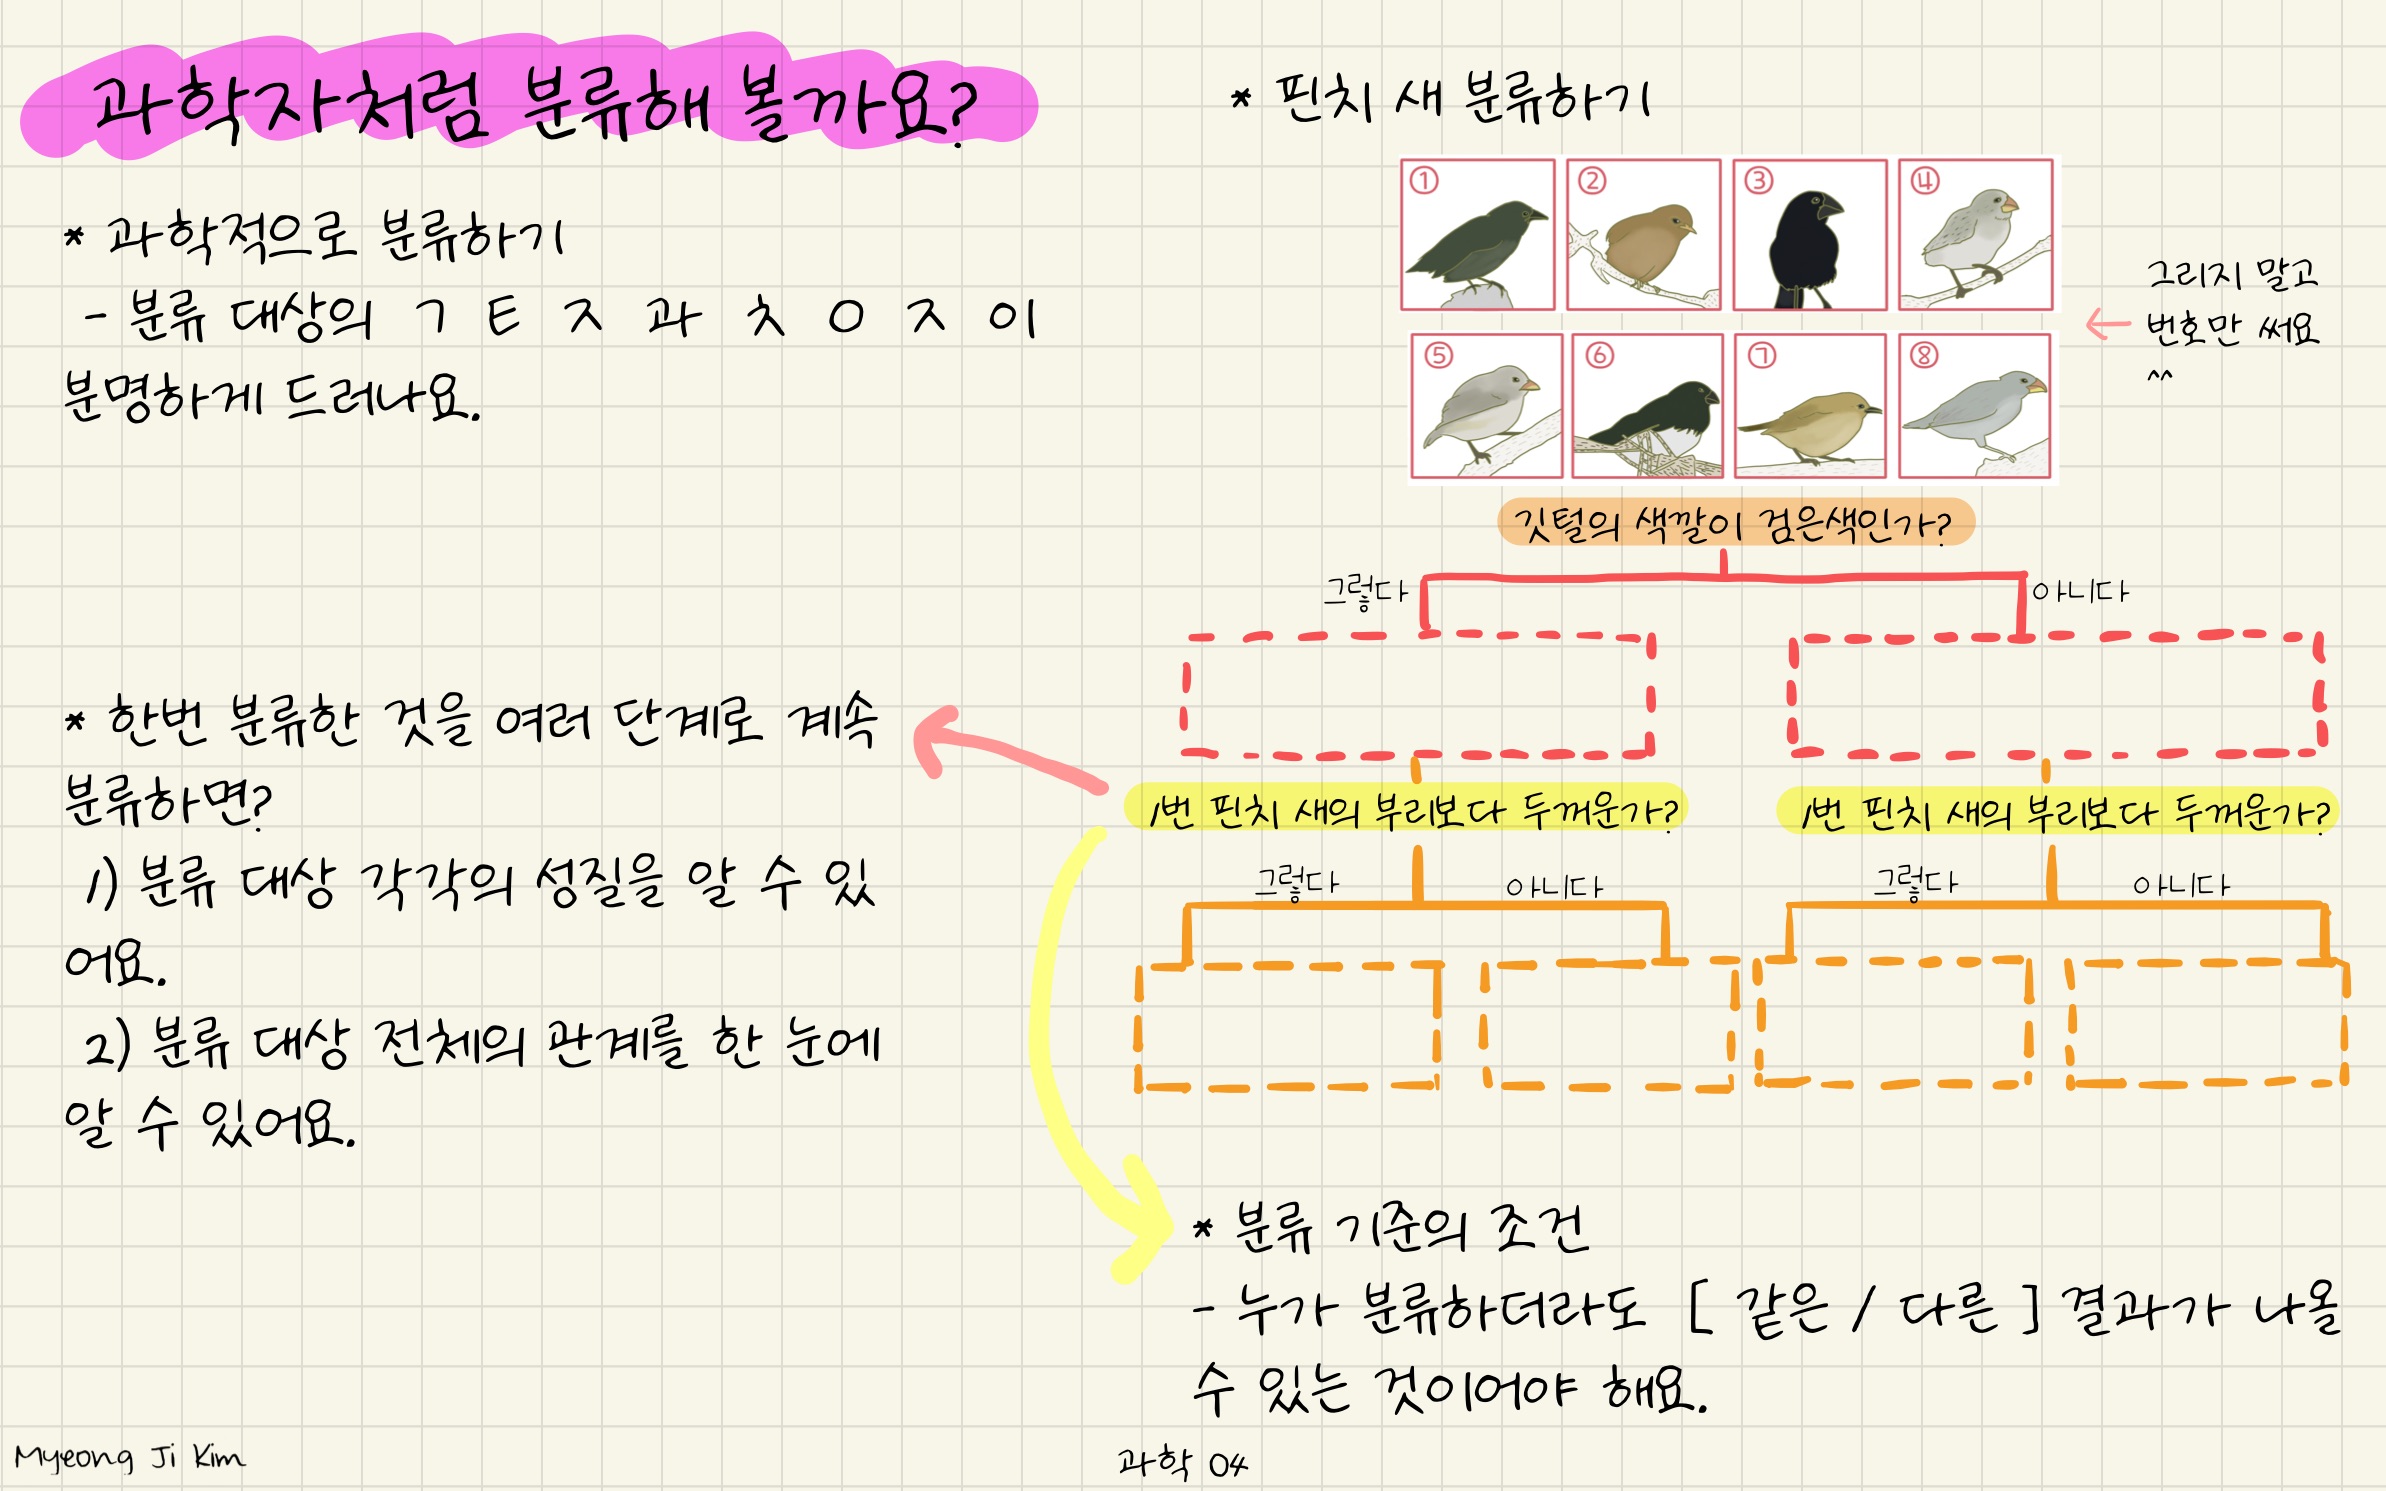 과학자처럼 분류해 볼까요?
* 과학적으로 분류하기
- 분류 대상의 ㄱ ㅌ ㅈ 과 ㅊ ㅇ ㅈ 이
분명하게 드러나요.
* 한번 분류한 것을 여러 단계로 계속
분류하면?
1) 분류 대상 각각의 성질을 알 수 있
어요.
2) 분류 대상 전체의 관계를 한 눈에
알 수 있어요.
* 핀치 새 분류하기
① ② ③ ④
⑤ ⑥ ⑦ ⑧
그리지 말고
번호만 써요
^^
깃털의 색깔이 검은색인가?
그렇다 아니다
1번 핀치 새의 부리보다 두꺼운가? 1번 핀치 새의 부리보다 두꺼운가?
그렇다 아니다 그렇다 아니다
* 분류 기준의 조건
- 누가 분류하더라도 [ 같은 / 다른 ] 결과가 나올
수 있는 것이어야 해요.
Myeong Ji Kim
과학 04